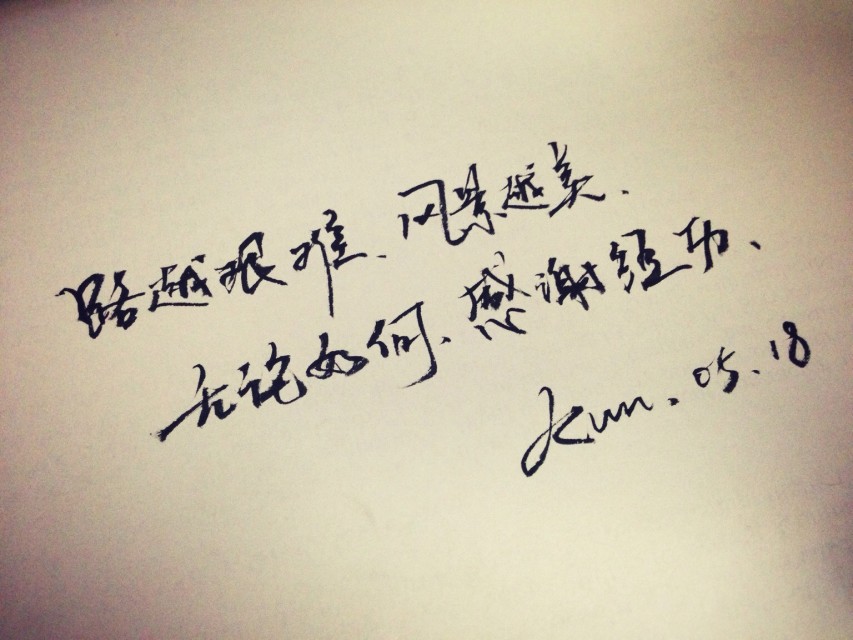 路越艰难、风景越美.
无论如何、感谢经历、
Kun. 05.18